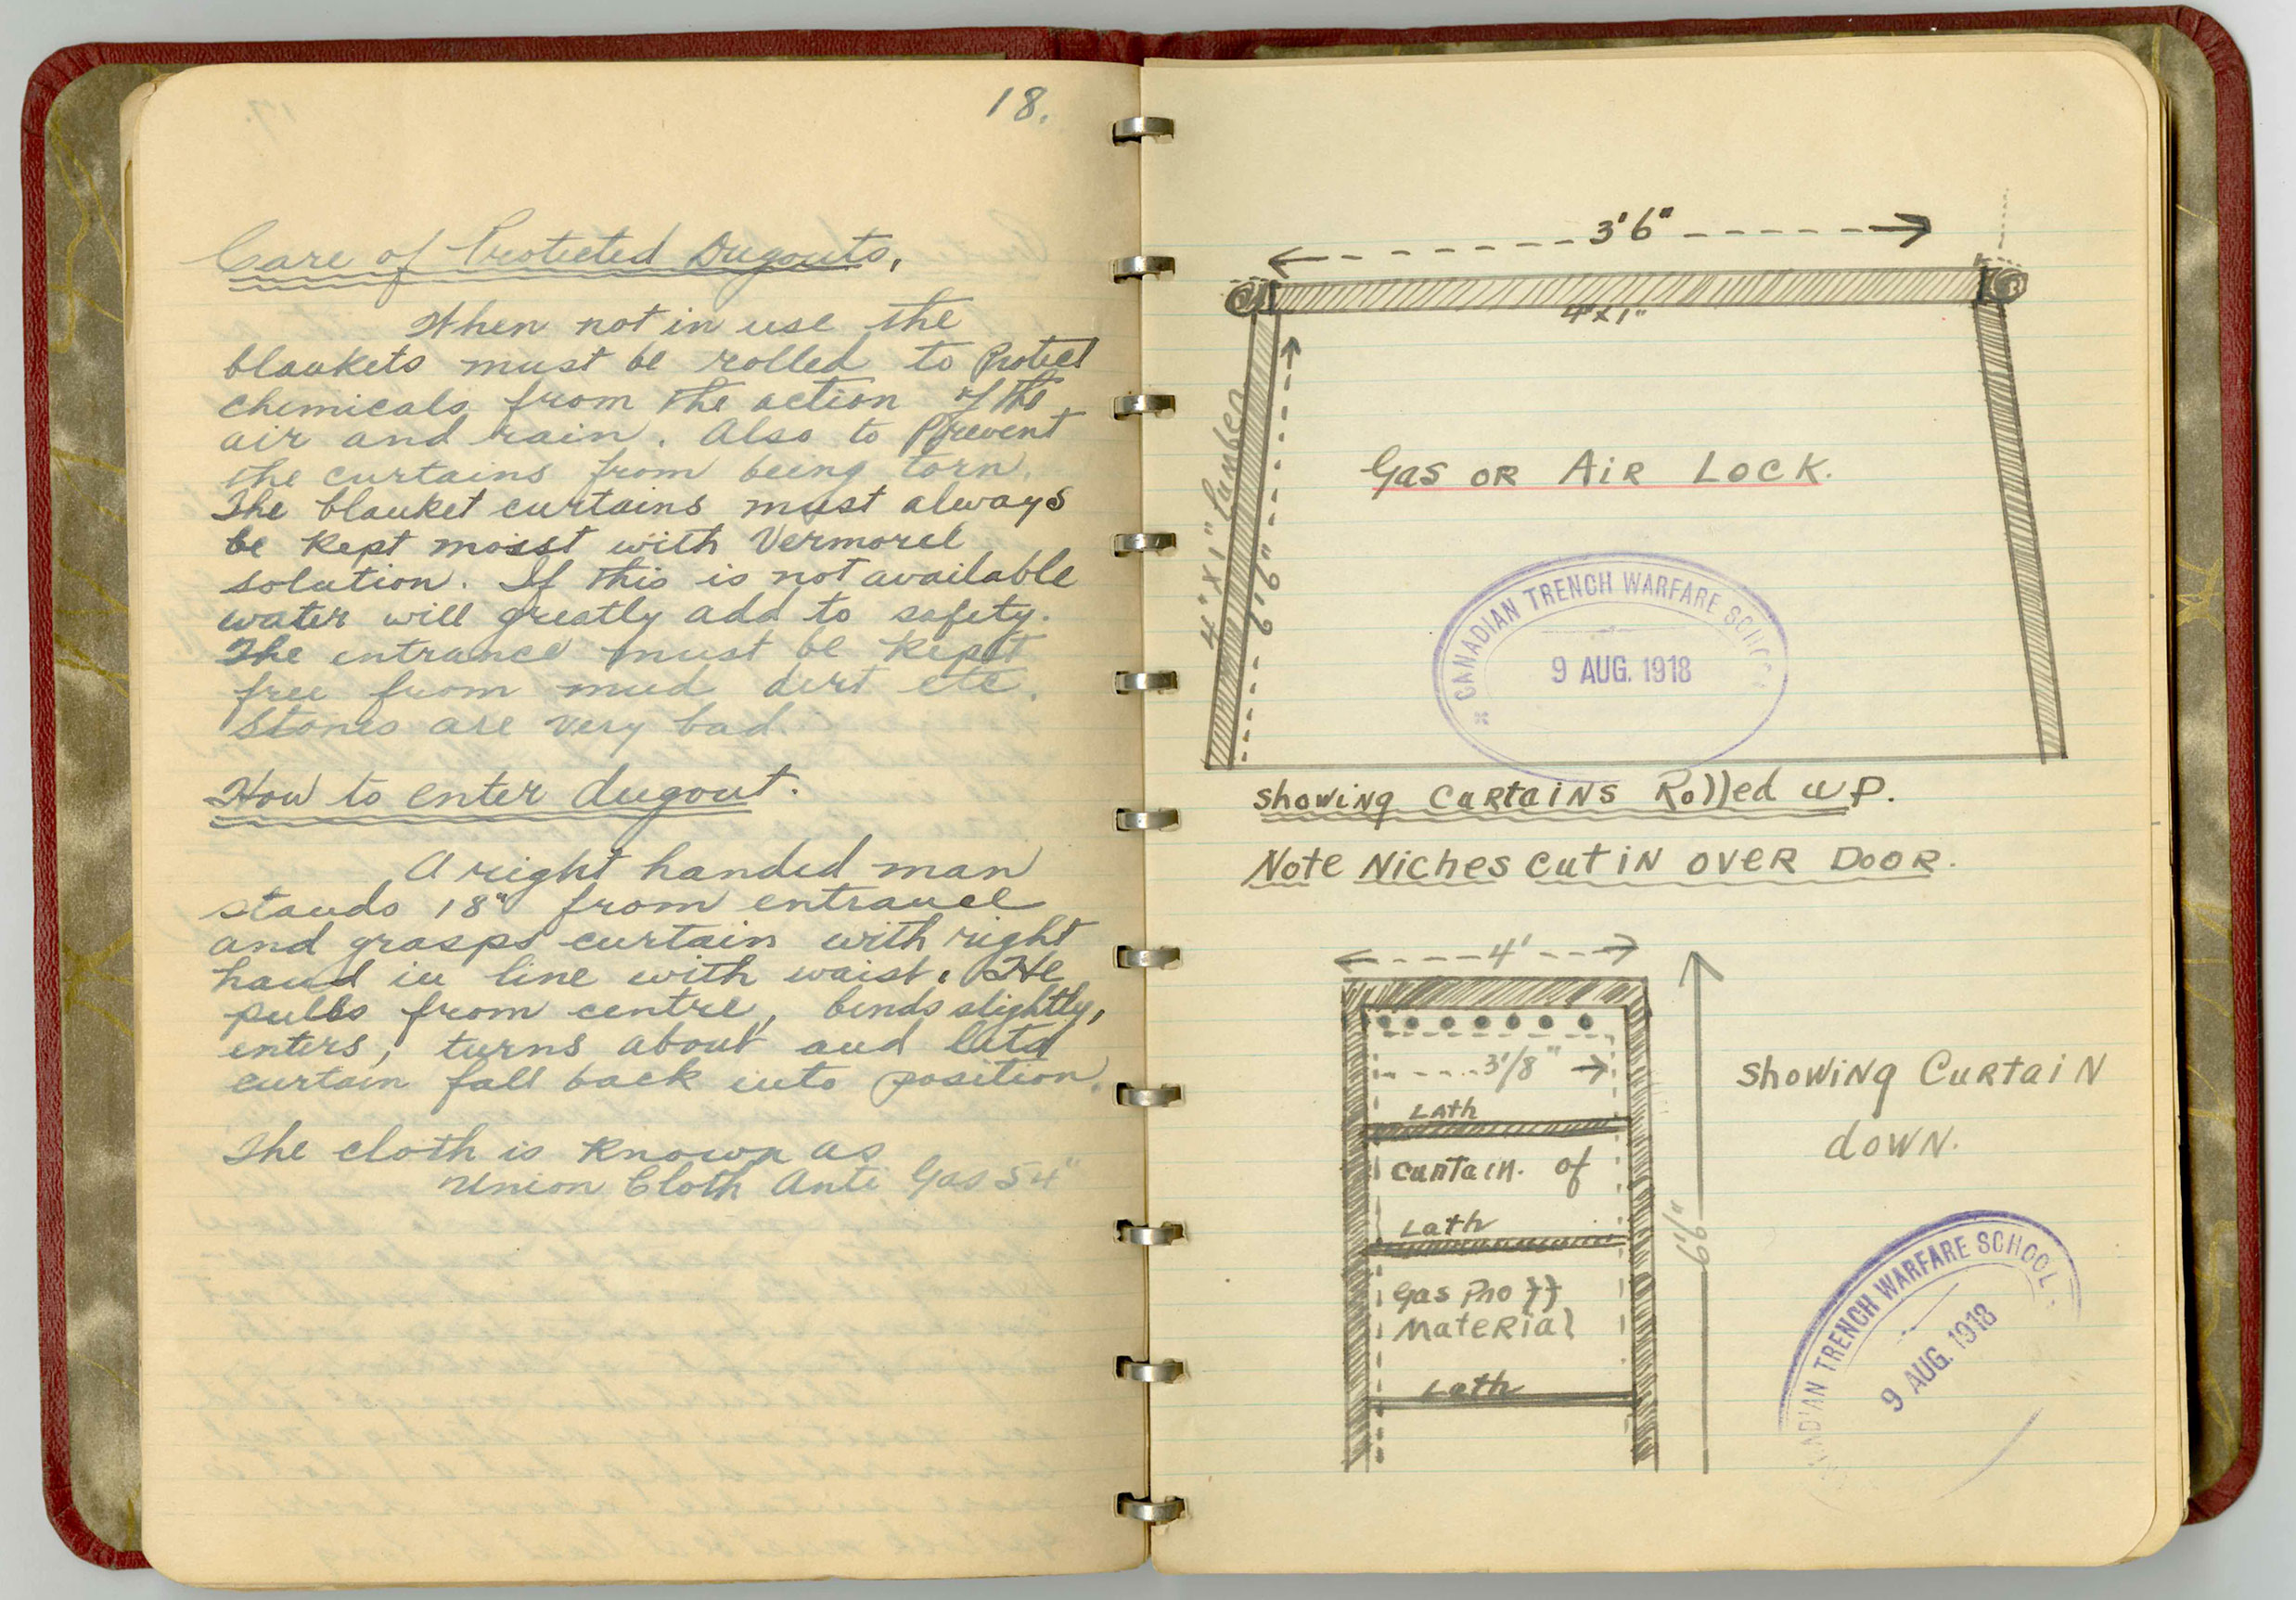 18.
Care of Protected Dugouts,
When not in use the
blankets must be rolled to Protect
chemicals from the action of the
air and rain. Also to Prevent
the curtains from being torn.
The blanket curtains must always
be kept moisst with Vermorel
solution. If this is not available
water will greatly add to safety.
The entrance must be kept
free from mud dirt etc.
Stones are very bad.
How to enter dugout.
A right handed man
stands 18" from entrance
and grasps curtain with right
hand in line with waist. He
pulls from centre, bends slightly,
enters, turns about and lets
curtain fall back into position.
The cloth is known as
Union Cloth Anti Gas 54"
3'6"
4"x1"
4"x1" lumber
6'6"
Gas OR AiR LOCK.
CANADIAN TRENCH WARFARE SCHOOL
9 AUG. 1918
showing CuRtaiNS Rolled up.
Note Niches cut iN OVER DOOR.
4'
3'/8"
LAth
curtain. of
Lath
Gas Proff
MateRial
Lath
6'6"
showiNg CuRtaiN
dowN.
CANADIAN TRENCH WARFARE SCHOOL.
9 AUG. 1918